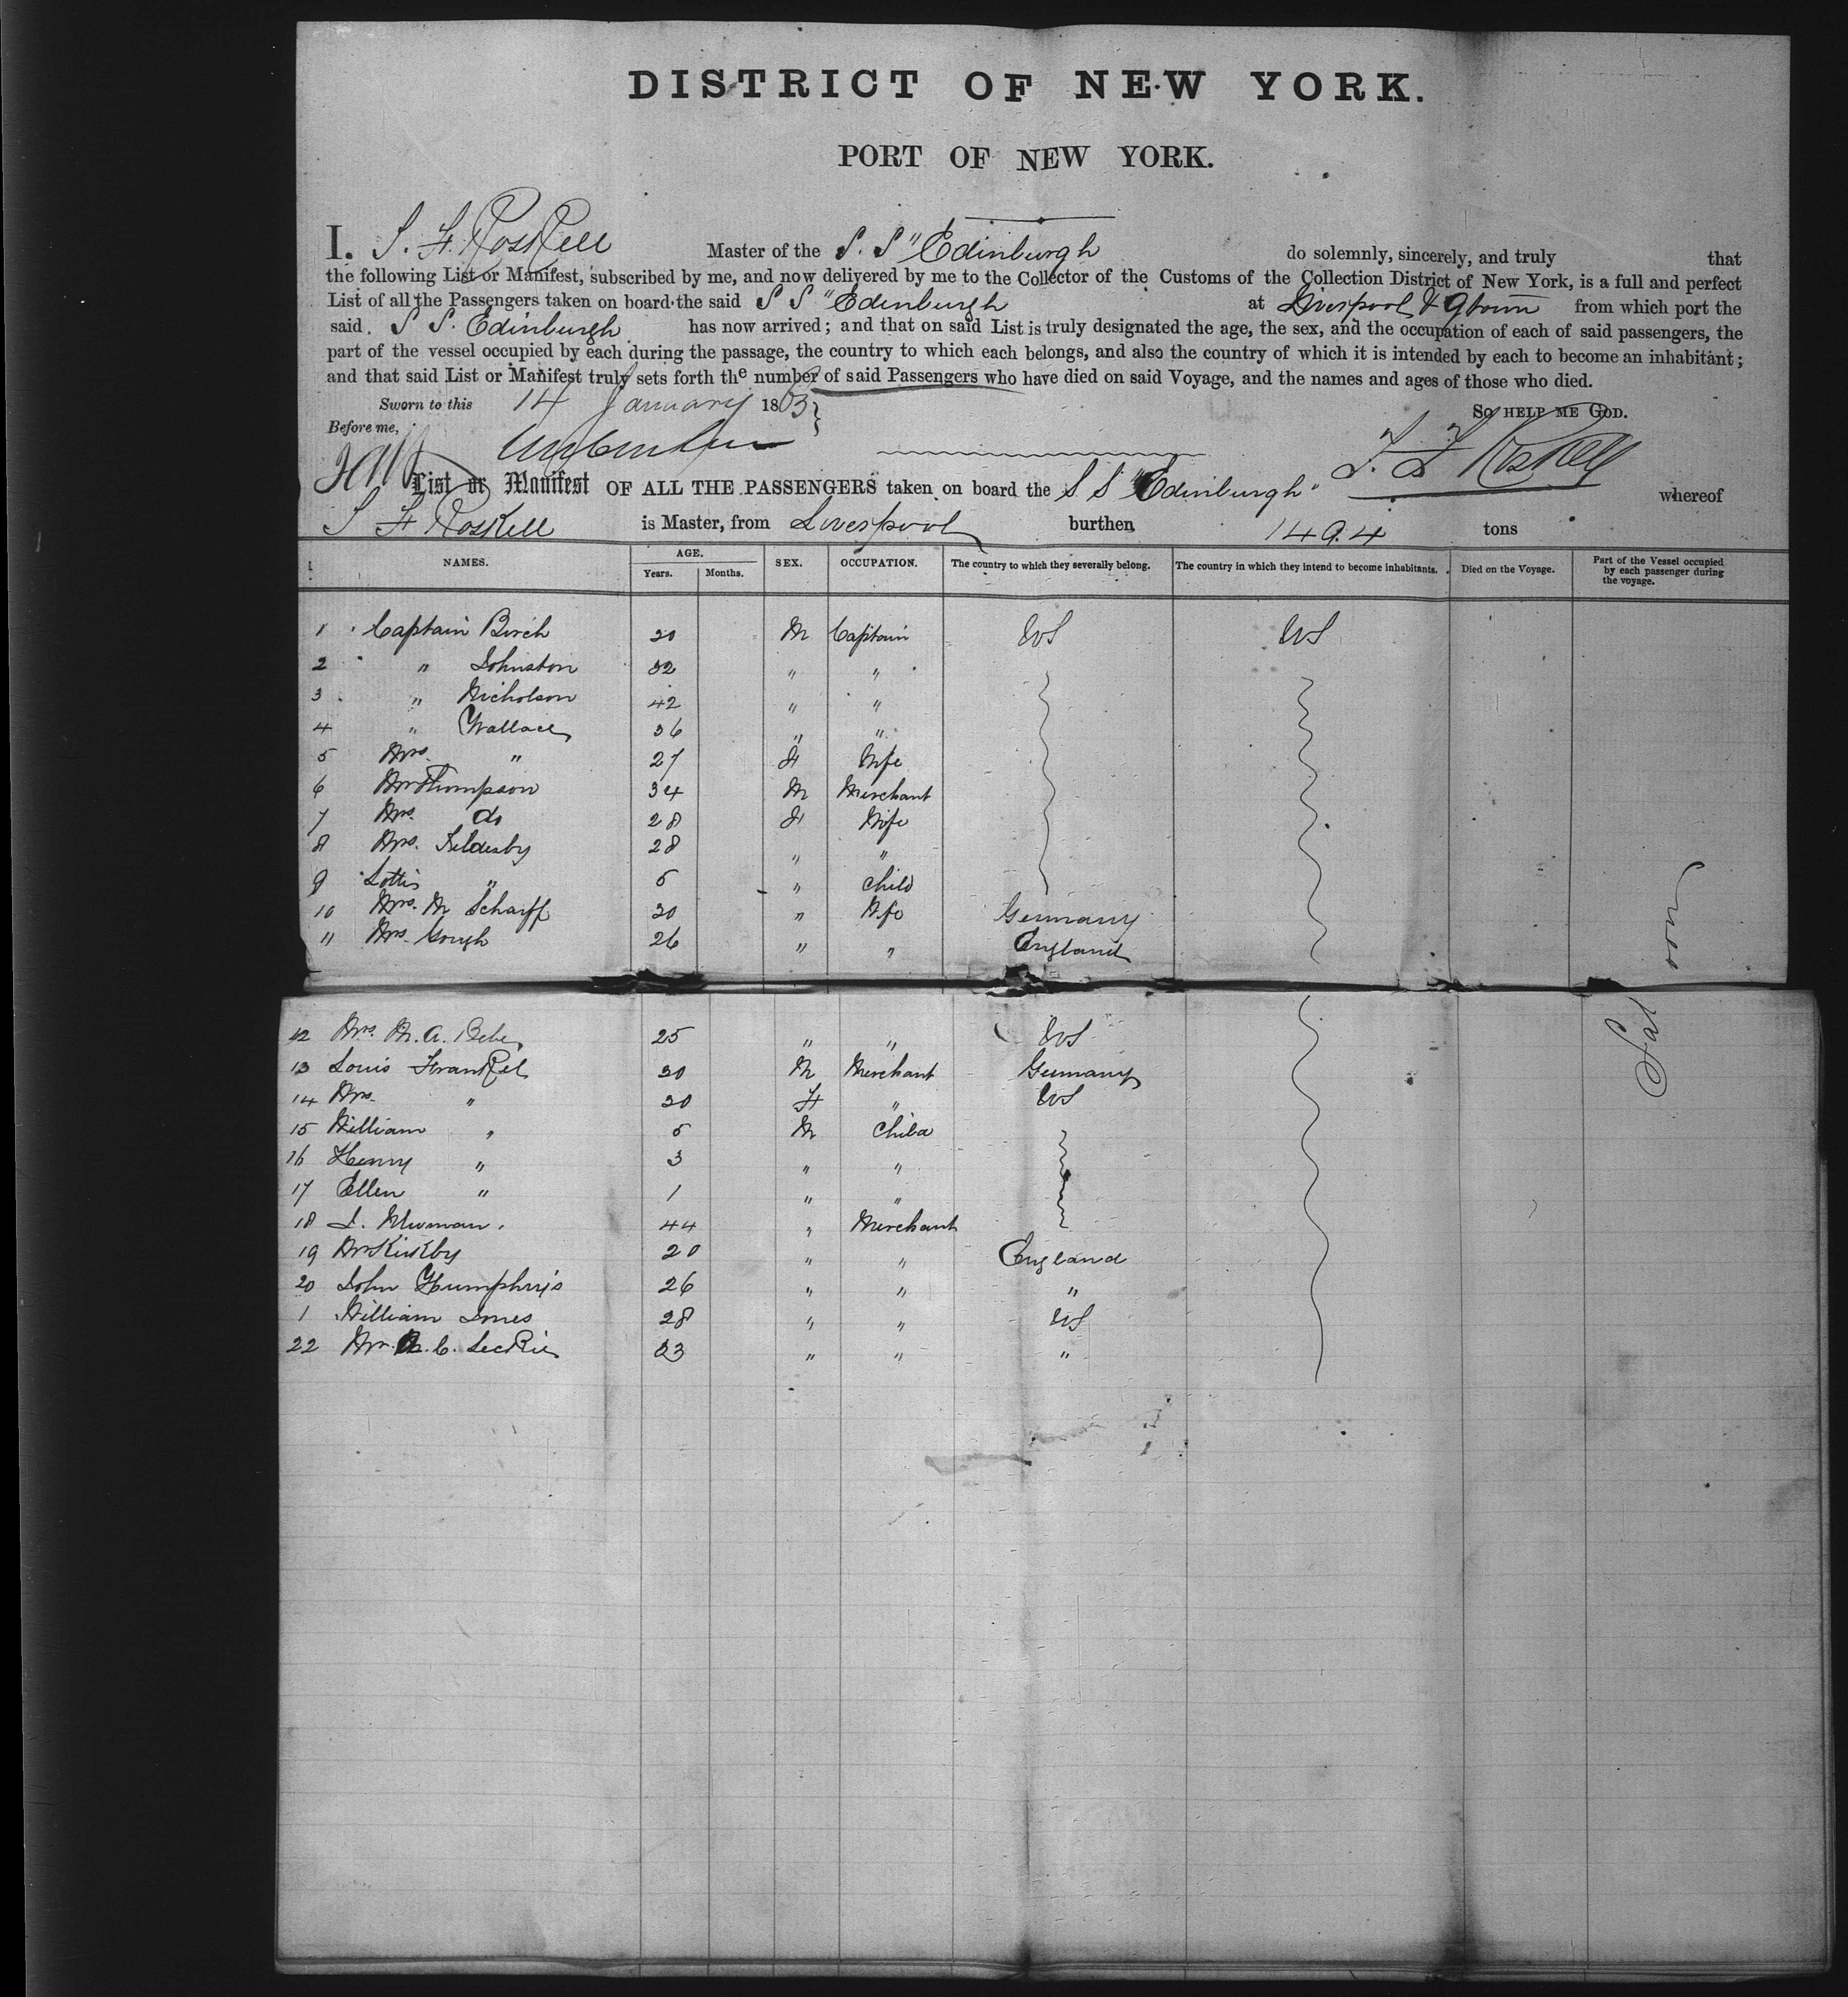 DISTRICT OF NEW YORK.
PORT OF NEW YORK.
I. S. F. Roskell Master of the S. S "Edinburgh do solemnly, sincerely, and truly that
the following List or Manifest, subscribed by me, and now delivered by me to the Collector of the Customs of the Collection District of New York, is a full and perfect
List of all the Passengers taken on board the said S S "Edinburgh at Liverpool & Qtown from which port the
said. S S. Edinburgh has now arrived; and that on said List is truly designated the age, the sex, and the occupation of each of said passengers, the
part of the vessel occupied by each during the passage, the country to which each belongs, and also the country of which it is intended by each to become an inhabitant;
and that said List or Manifest truly sets forth the number of said Passengers who have died on said Voyage, and the names and ages of those who died.
Sworn to this 14 January 1863 So HELP ME GOD.
Before me,
List or Manifest OF ALL THE PASSENGERS taken on board the S S "Edinburgh" whereof
S F Roskell is Master, from Liverpool burthen 1494 tons
NAMES. AGE. Years. Months. SEX. OCCUPATION. The country to which they severally belong. The country in which they intend to become inhabitants. Died on the Voyage. Part of the Vessel occupied by each passenger during the voyage.
1 Captain Birch 30 M Captain US US
2 " Johnston 32 " "
3 " Nicholson 42 " "
4 " Wallace 36 " "
5 Mrs. " 27 F Wife
6 Mr Thompson 34 M Merchant
7 Mrs. do 28 F Wife
8 Mrs. 28 " "
9 " 5 " Child
10 Mrs. M Scharff 30 " Wife Germany
11 Mrs. Gough 26 " " England
12 Mrs. M. A. 25 " " US
13 Louis Frankel 30 M Merchant Germany
14 Mrs. " 20 F " US
15 William " 5 M Child
16 Henry " 3 " "
17 Ellen " 1 " "
18 Newman 44 " Merchant
19 Mr Kirkby 20 " " England
20 John Humphrys 26 " " "
1 William Jones 28 " " US
22 Mr. C. Leckie 33 " " "